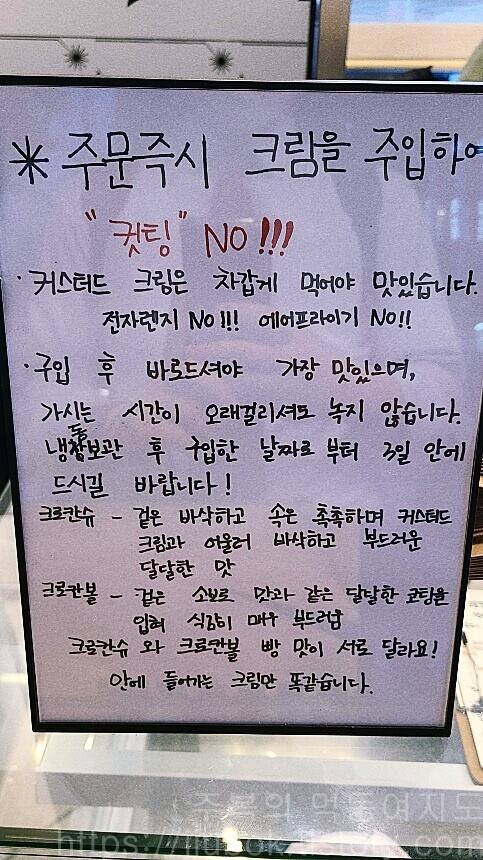 * 주문즉시 크림을 주입하여
"컷팅" NO!!!
· 커스터드 크림은 차갑게 먹어야 맛있습니다.
전자렌지 NO!!! 에어프라이기 NO!!
· 구입 후 바로드셔야 가장 맛있으며,
가시는 시간이 오래걸리셔도 녹지 않습니다.
냉장보관 후 구입한 날짜로 부터 2일 안에
드시길 바랍니다!
크로칸슈 - 겉은 바삭하고 속은 촉촉하며 커스터드
크림과 어울러 바삭하고 부드러운
달달한 맛
크로칸볼 - 겉은 소보로 맛과 같은 달달한 코팅을
입혀 식감이 매우 부드러움
크로칸슈 와 크로칸볼 빵 맛이 서로 달라요!
안에 들어가는 크림만 똑같습니다.
먹동여지도